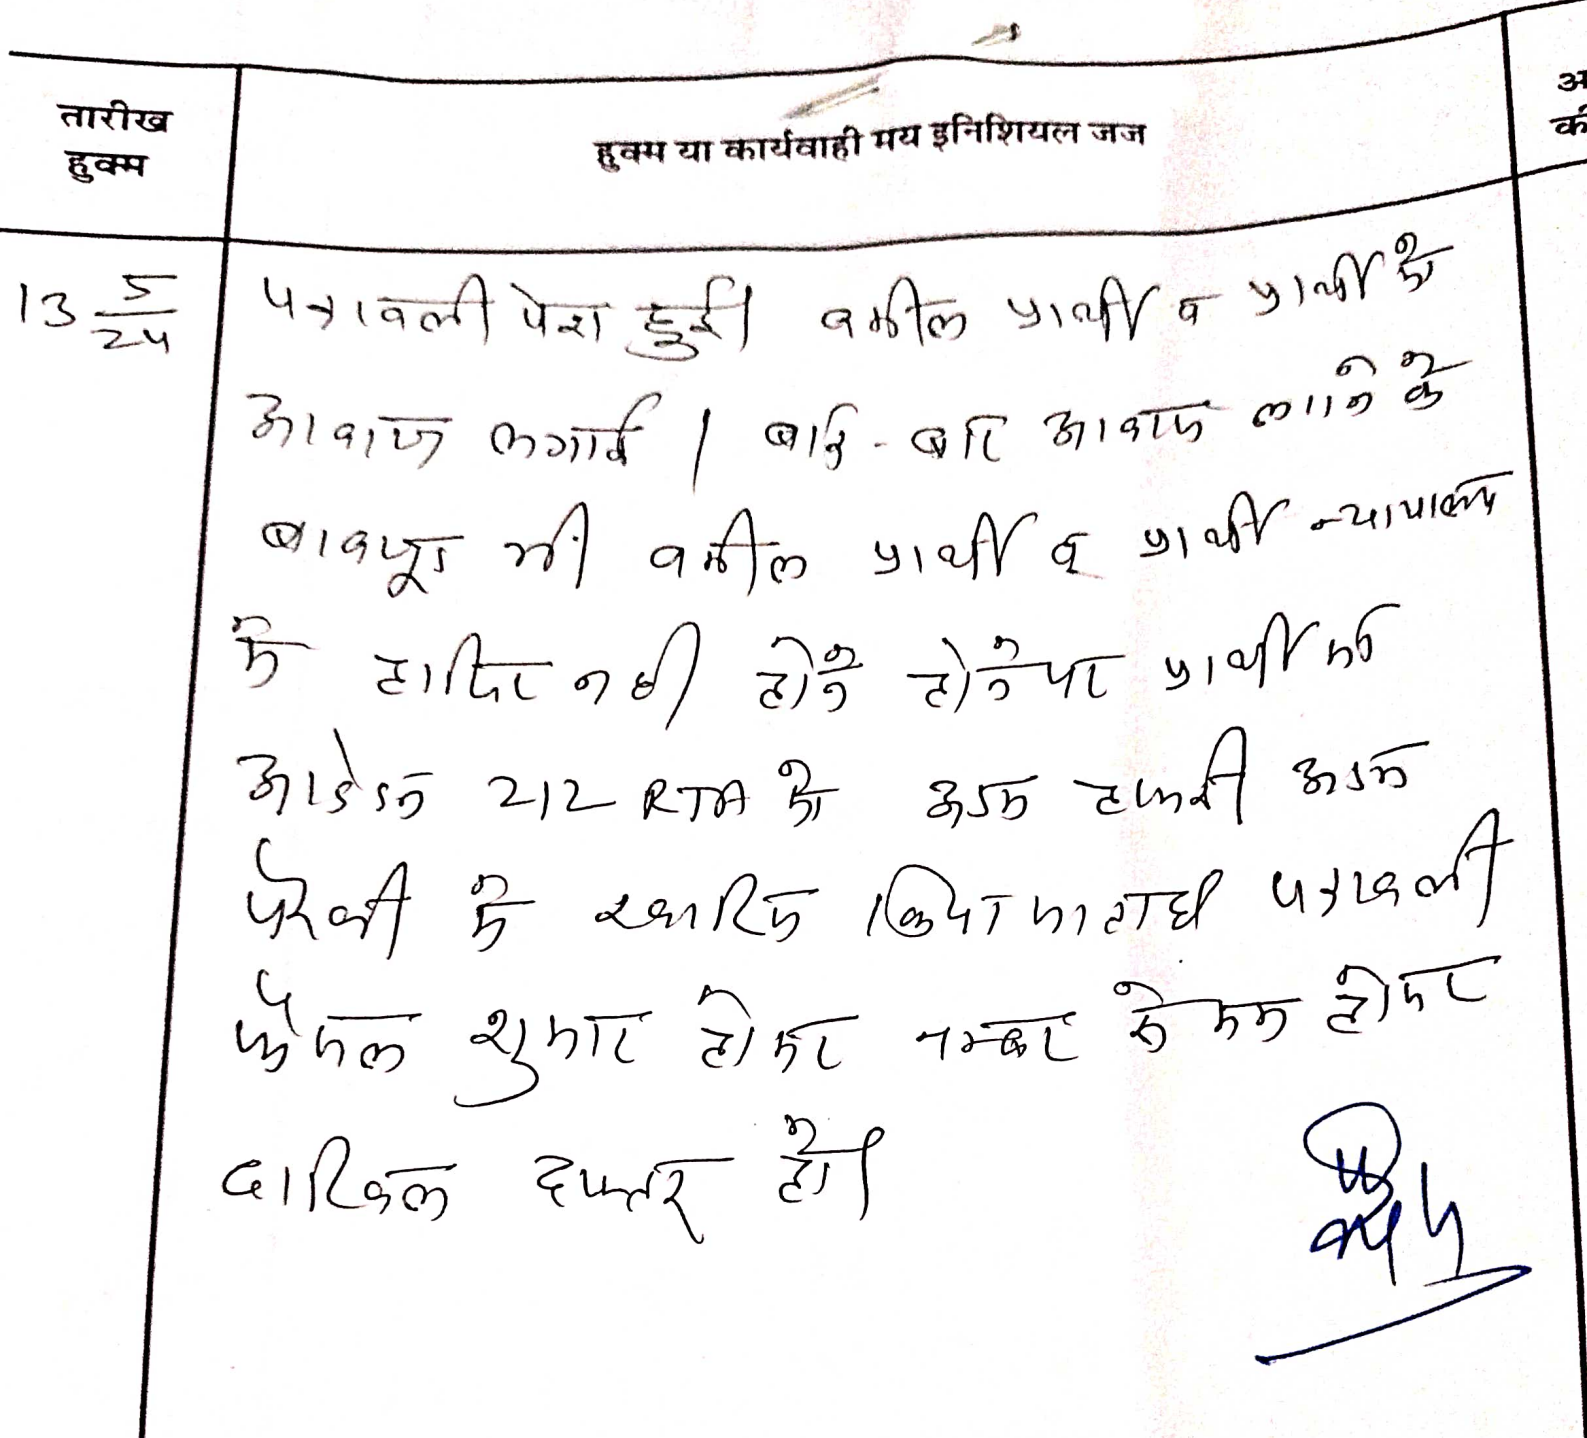 तारीख
हुक्म
हुक्म या कार्यवाही मय इनिशियल जज
अ
की
13 5/24
पत्रावली पेश हुई। वकील प्रार्थी व प्रार्थी के
आवाज लगाई। बार-बार आवाज लगाने के
बावजूद भी वकील प्रार्थी व प्रार्थी न्यायालय
में हाजिर नही होने होने पर प्रार्थी की
212 RTA को अदम हाजरी अदम
पैरवी में खारिज किया जाता है पत्रावली
फैसल शुमार होकर नम्बर से कम होकर
दाखिल दफ्तर हो।